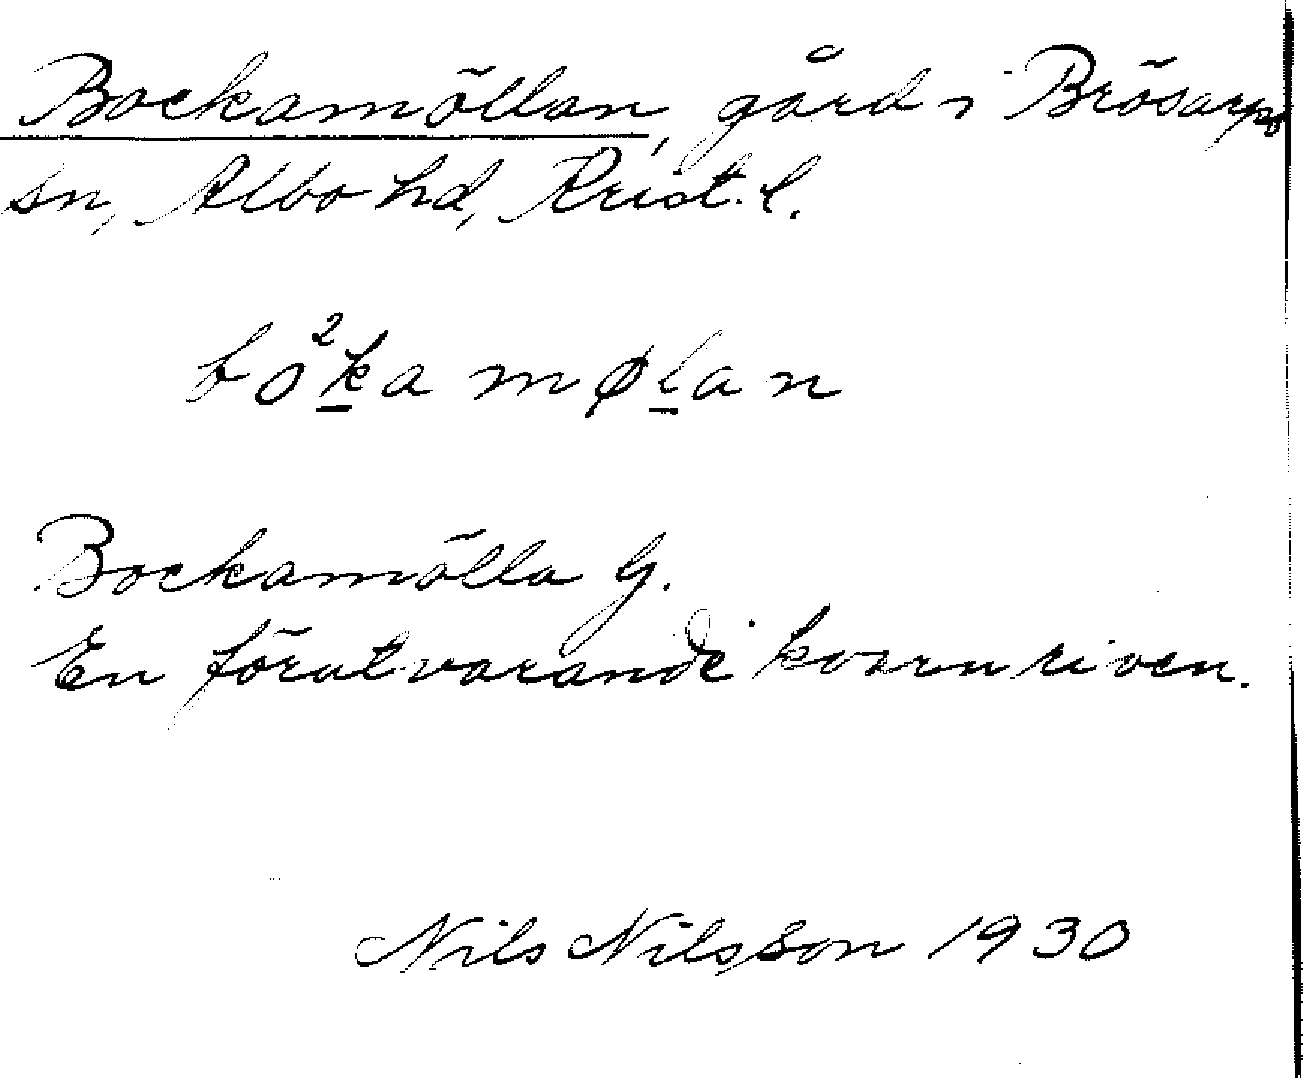 Bockamöllan, gård i Brösarps
sn, Albo hd, Krist. l.
bo²k̲amøl̲an
Bockamölla G.
En förutvarande kvarn riven.
Nils Nilsson 1930